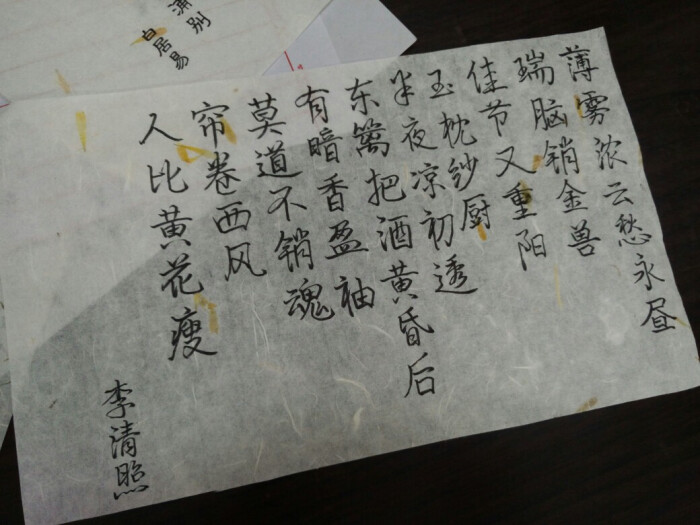 薄雾浓云愁永昼
瑞脑销金兽
佳节又重阳
玉枕纱厨
半夜凉初透
东篱把酒黄昏后
有暗香盈袖
莫道不销魂
帘卷西风
人比黄花瘦
李清照
浦别
白居易